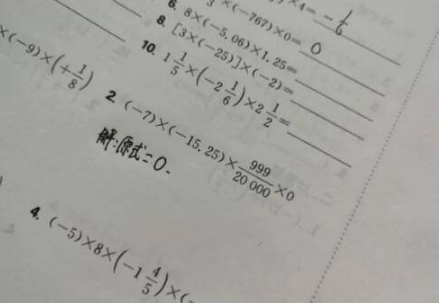 ×4= -1/6
×(-767)×0= 0
6. 8×(-5.06)×1.25=
8. [3×(-25)]×(-2)=
10. 1 1/5×(-2 1/6)×2 1/2=
×(-9)×(+1/8)
2. (-7)×(-15.25)×999/20 000×0
解:原式=0.
4. (-5)×8×(-1 4/5)×(-